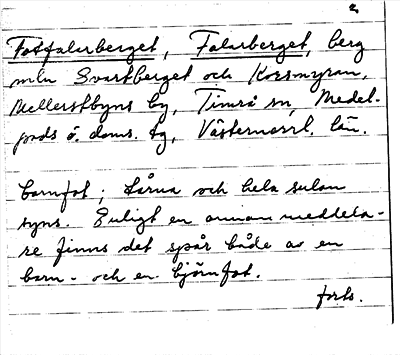 2
Fotfalurberget, Falurberget, berg
mln Svartberget och Korsmyran,
Mellerstbyns by, Timrå sn, Medel-
pads ö. doms. tg, Västernorrl. län.
barnfot; tårna och hela sulan
syns. Enligt en annan meddela-
re finns det spår både av en
barn- och en björnfot.
forts.